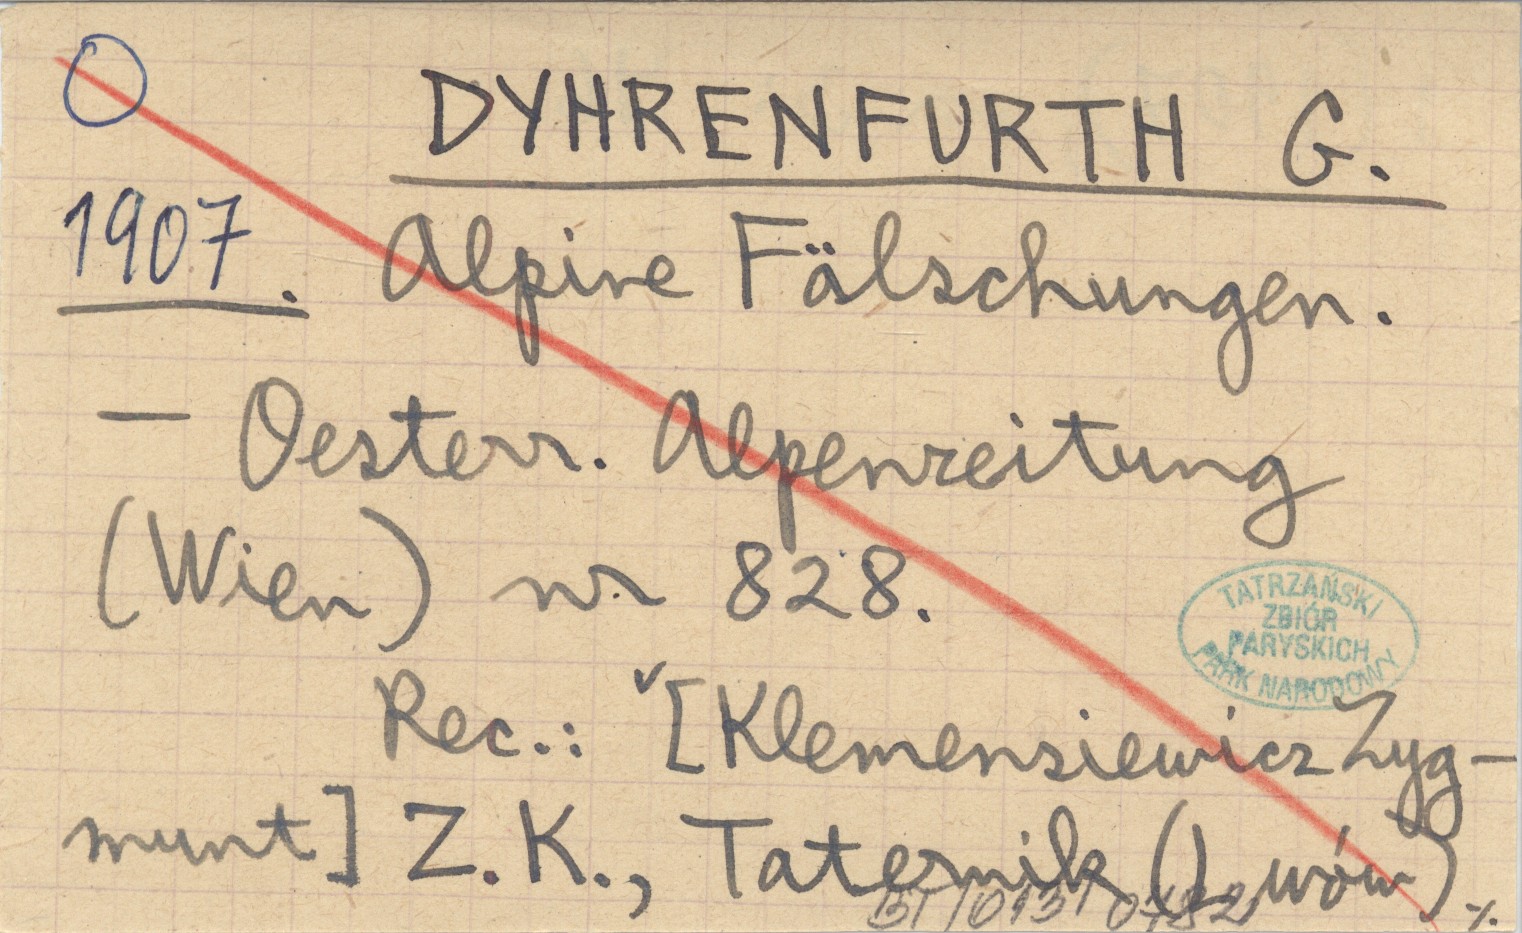 DYHRENFURTH G.
1907. Alpine Fälschungen.
— Oesterr. Alpenzeitung
(Wien) nr 828.
TATRZAŃSKI
ZBIÓR
PARYSKICH
PARK NARODOWY
Rec.: [Klemensiewicz Zyg-
munt] Z.K., Taternik (Lwów)